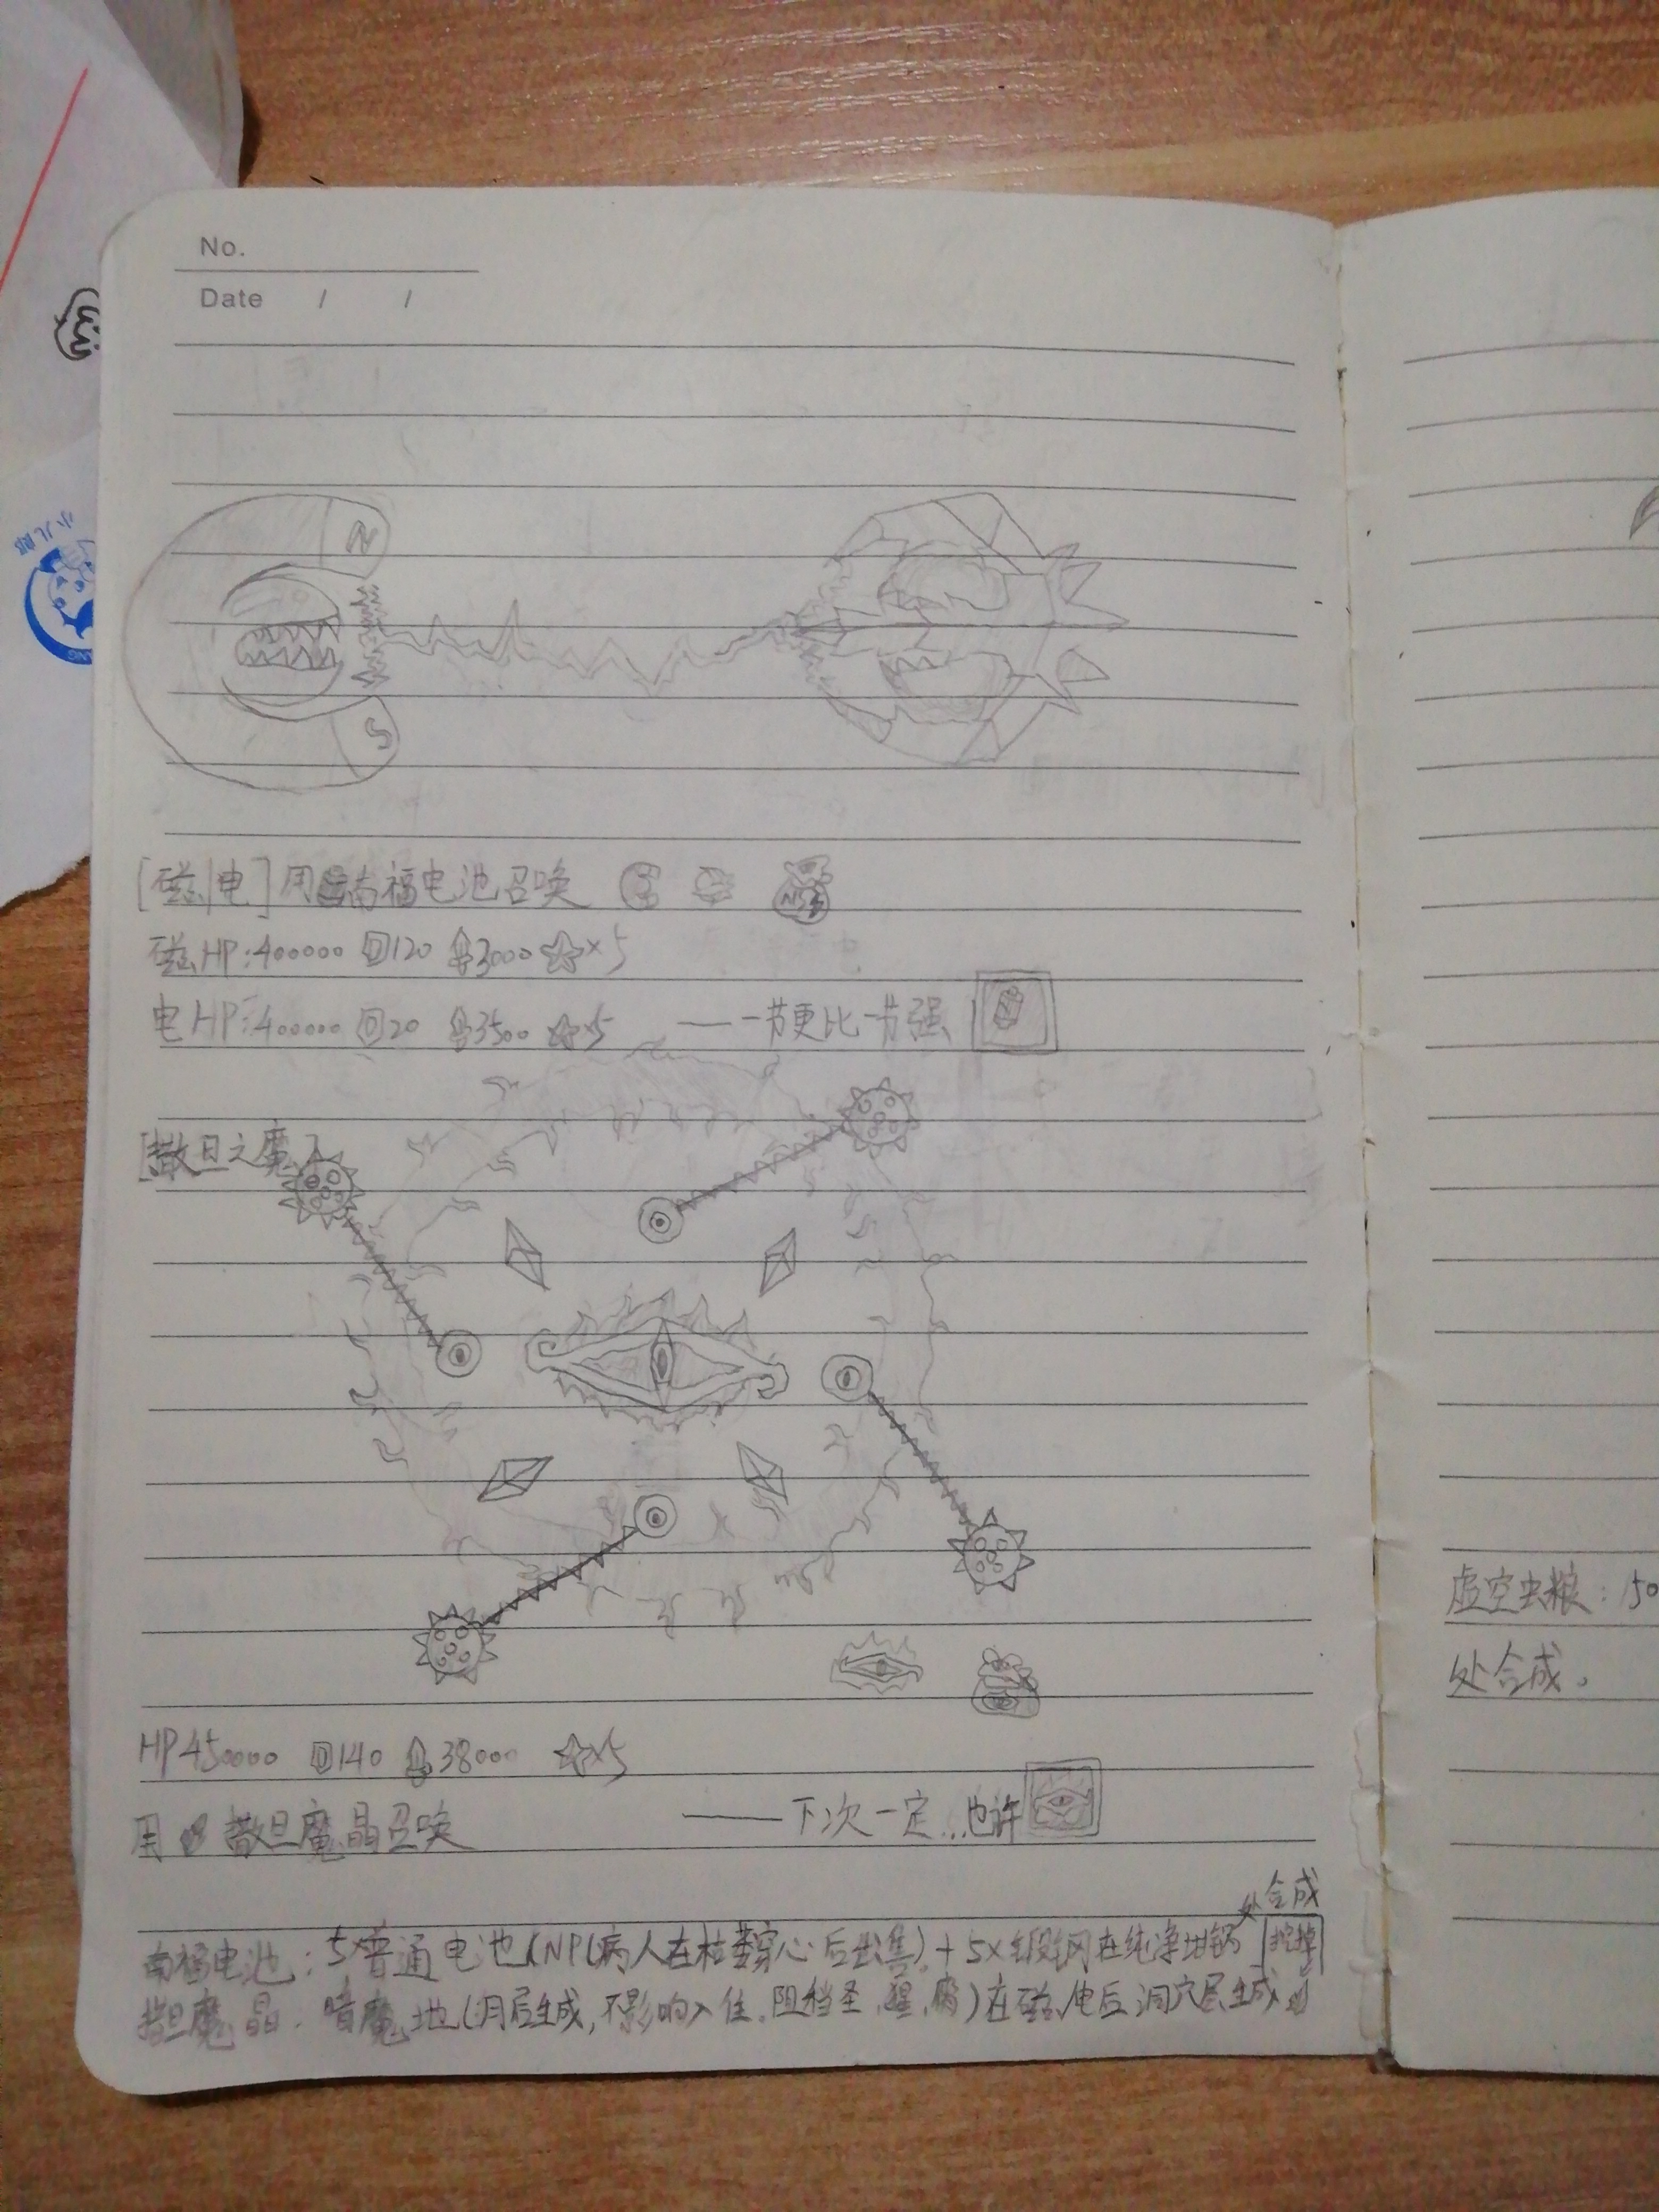 No.
Date / /
小儿郎
N
S
[磁|电]用南福电池召唤
NS
磁HP:400000 120 3000 ×5
电HP:400000 20 3500 ×5 ——一节更比一节强
[撒旦之魔]
HP450000 140 38000 ×5
用 撒旦魔晶召唤 ——下次一定...也许
合成
南福电池:5×普通电池(NPC病人在 穿心后出售)+5×锻钢在纯净坩锅处
撒旦魔晶.暗魔地(月后生成,不影响入住.阻挡圣,猩,腐)在磁、电后洞穴层生成
虚空虫粮:150
处合成。